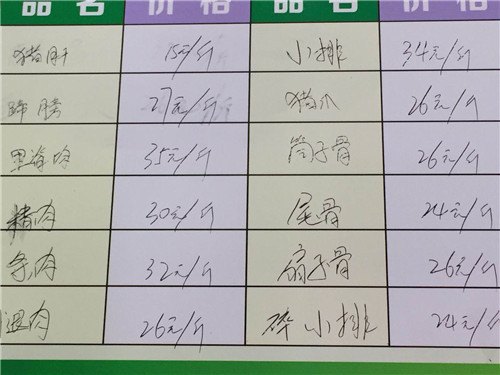 品名 价格 品名 价格
猪肝 15元/斤 小排 34元/斤
蹄膀 27元/斤 猪爪 26元/斤
里脊肉 35元/斤 筒子骨 26元/斤
精肉 30元/斤 尾骨 24元/斤
32元/斤 扇子骨 26元/斤
腿肉 26元/斤 碎小排 24元/斤